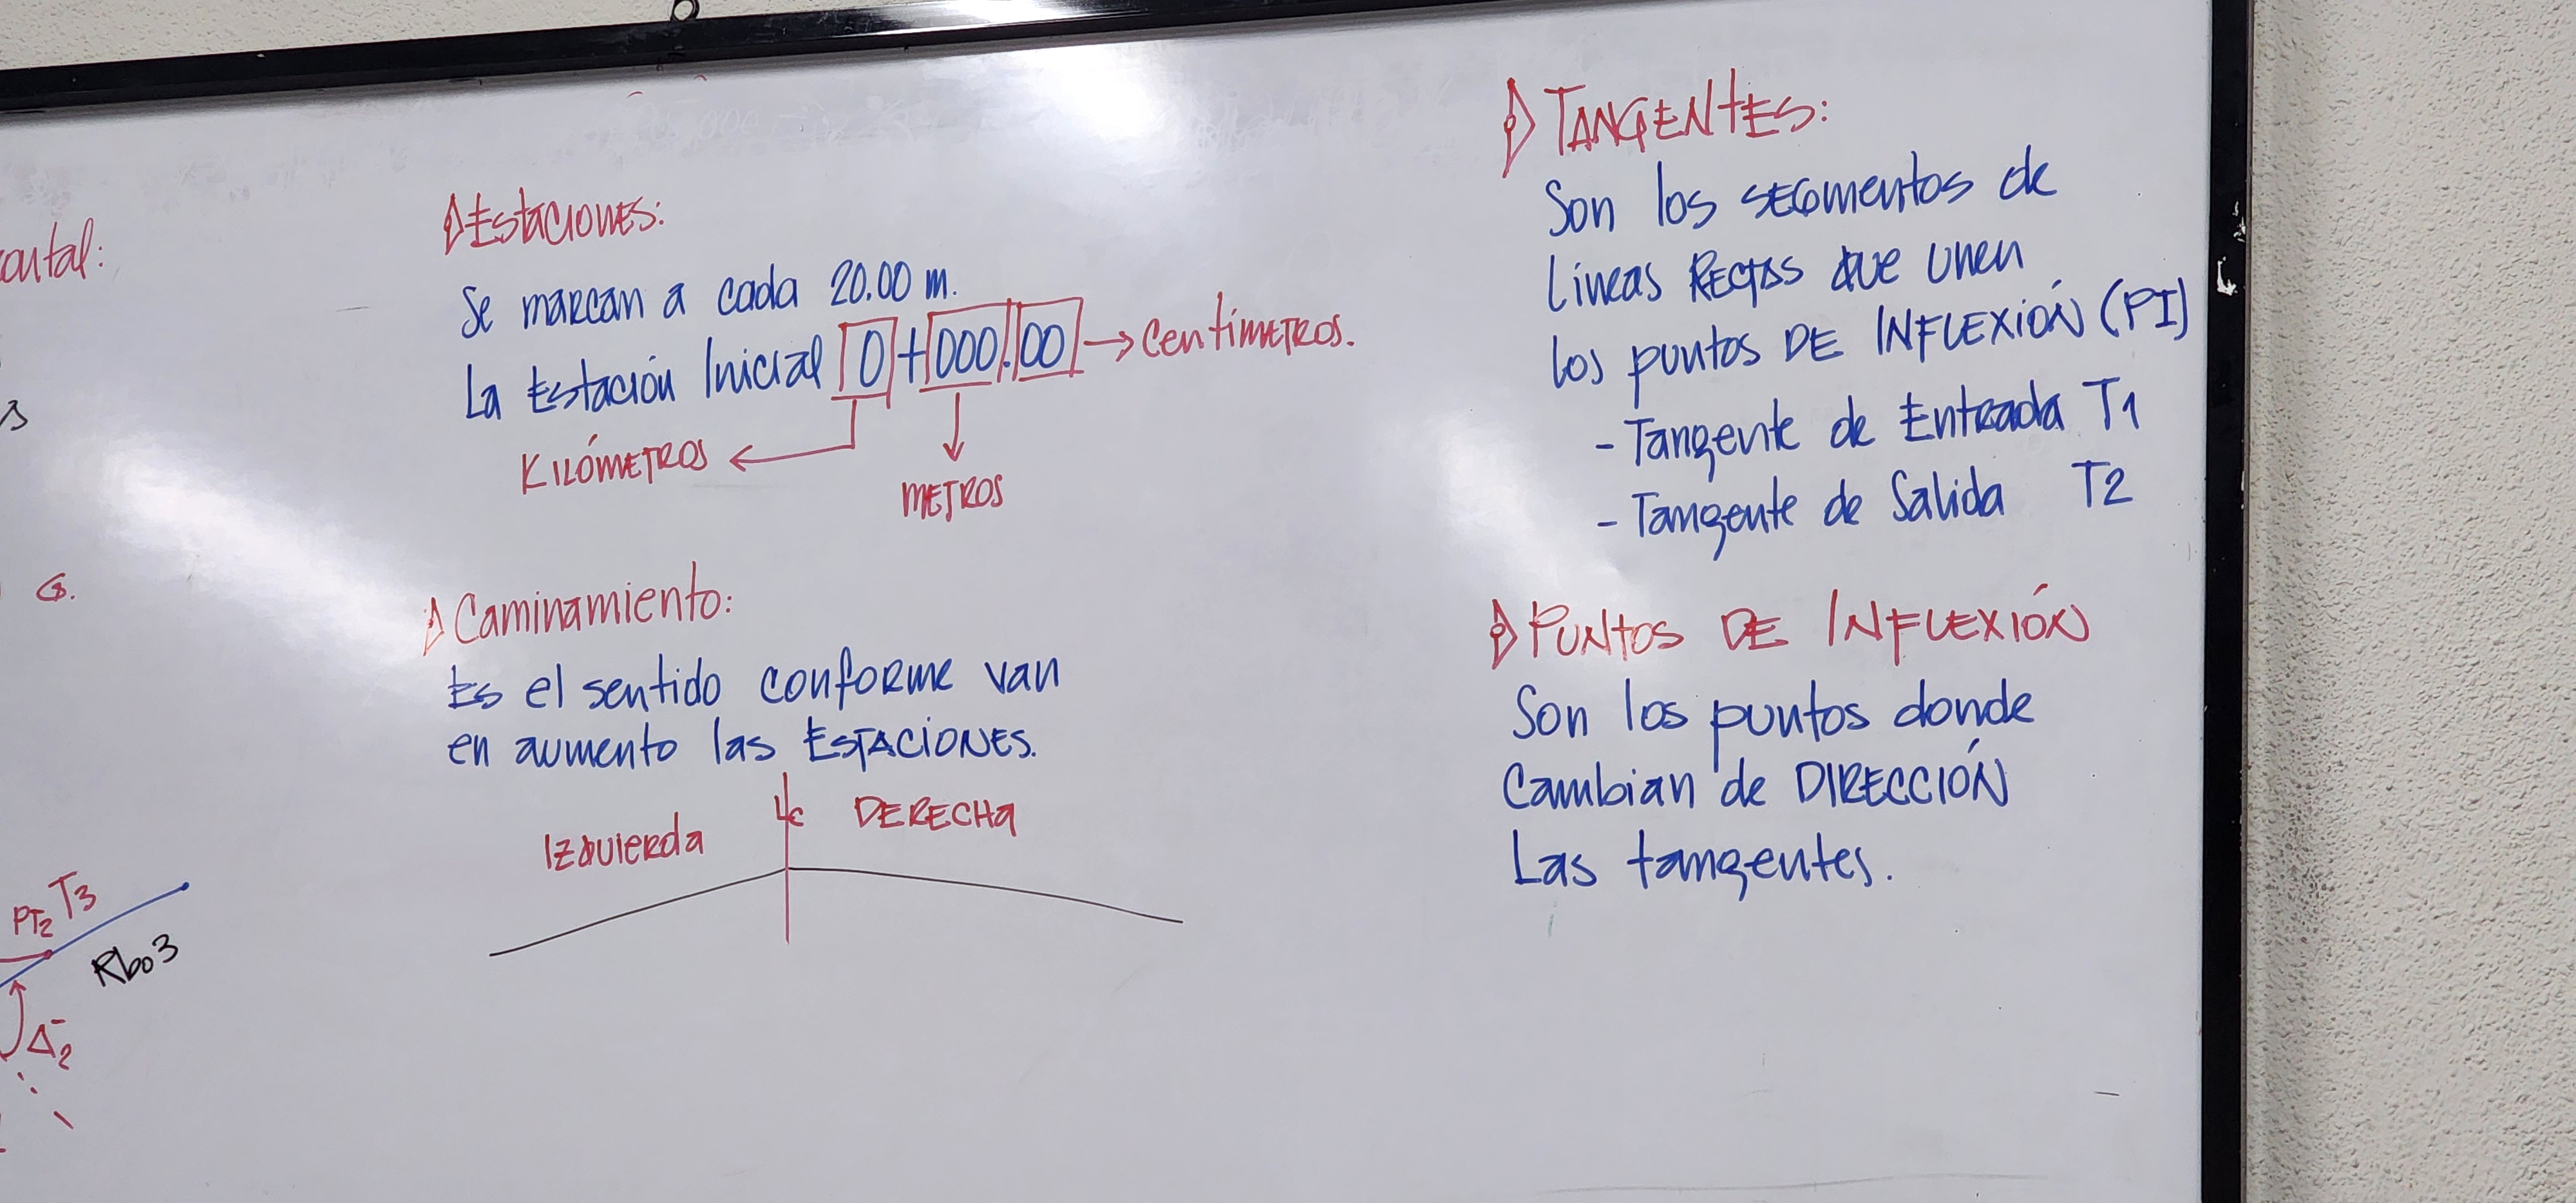 Estaciones:
Se marcan a cada 20.00 m.
La Estación Inicial 0+000.00 → Centímetros.
Kilómetros ←
METROS
Caminamiento:
Es el sentido conforme van
en aumento las ESTACIONES.
Izquierda
DERECHA
TANGENTES:
Son los segmentos de
Líneas Rectas que unen
los puntos DE INFLEXIÓN (PI)
- Tangente de Entrada T1
- Tangente de Salida T2
PUNTOS DE INFLEXIÓN
Son los puntos donde
Cambian de DIRECCIÓN
Las tangentes.
ontal:
G.
PT2 T3
Rbo3
Δ2